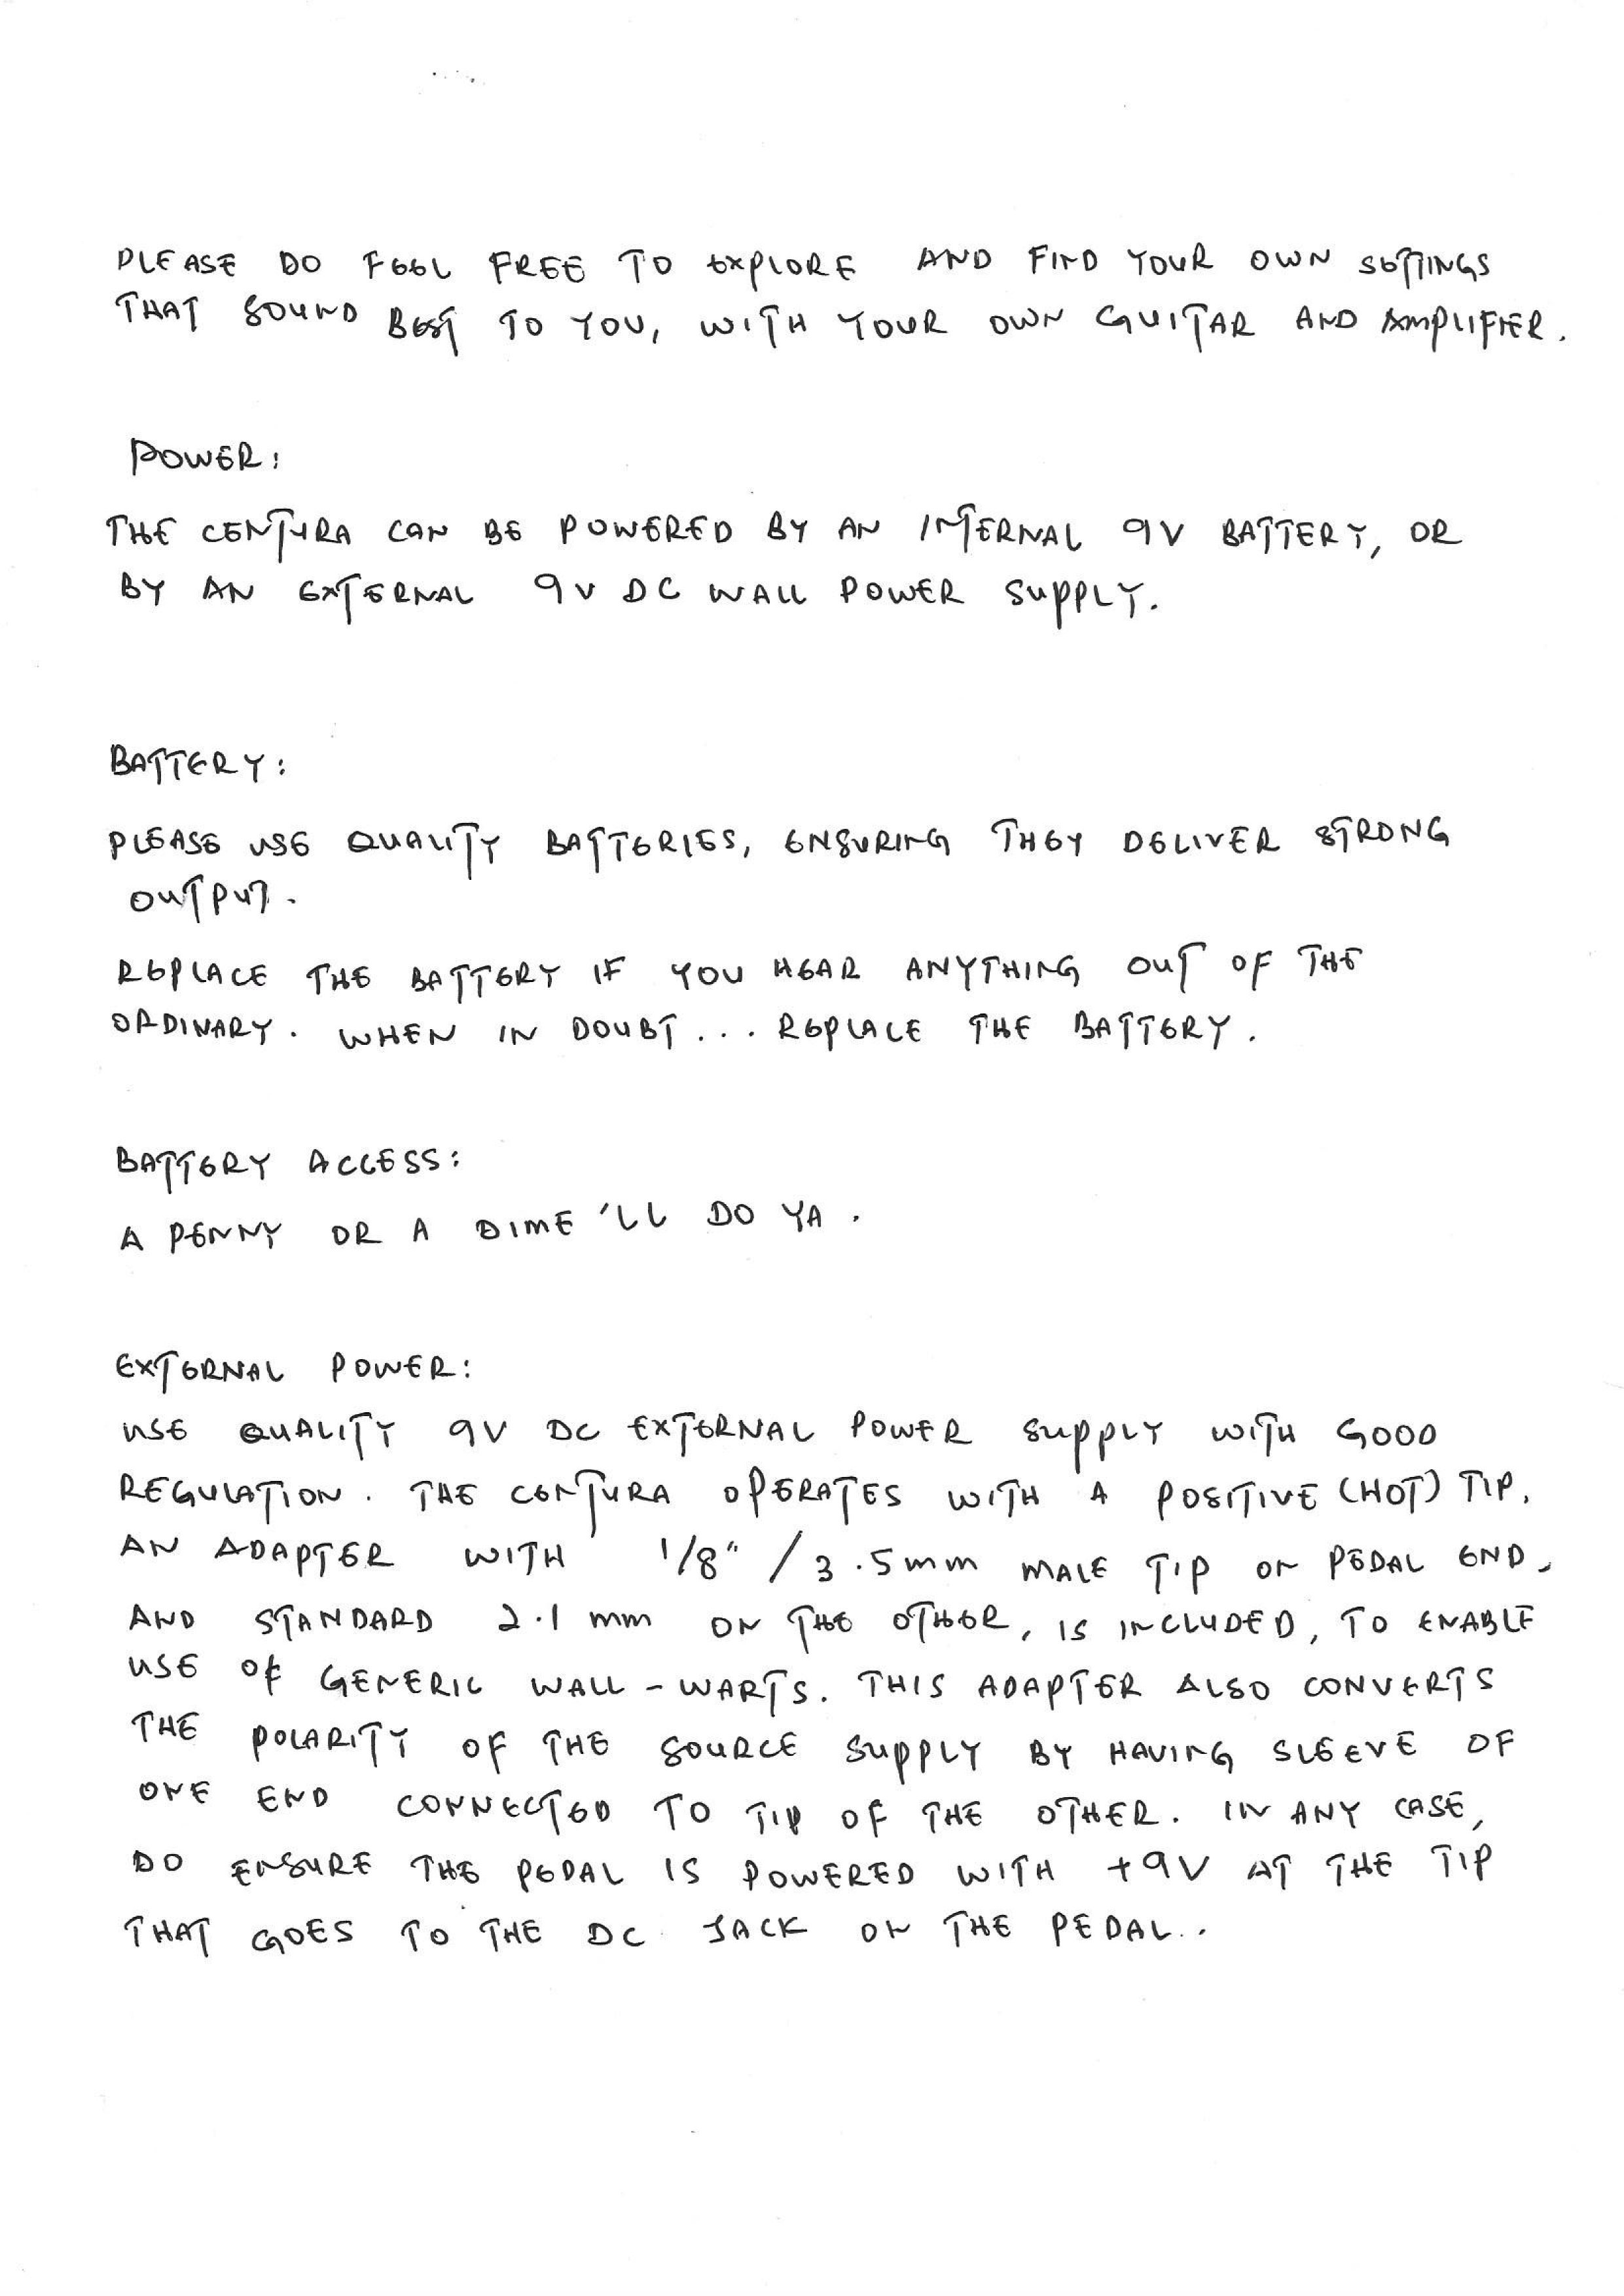 PLEASE DO FEEL FREE TO EXPLORE AND FIND YOUR OWN SETTINGS
THAT SOUND BEST TO YOU, WITH YOUR OWN GUITAR AND AMPLIFIER.
POWER:
THE CENTURA CAN BE POWERED BY AN INTERNAL 9V BATTERY, OR
BY AN EXTERNAL 9V DC WALL POWER SUPPLY.
BATTERY:
PLEASE USE QUALITY BATTERIES, ENSURING THEY DELIVER STRONG
OUTPUT.
REPLACE THE BATTERY IF YOU HEAR ANYTHING OUT OF THE
ORDINARY. WHEN IN DOUBT... REPLACE THE BATTERY.
BATTERY ACCESS:
A PENNY OR A DIME'LL DO YA.
EXTERNAL POWER:
USE QUALITY 9V DC EXTERNAL POWER SUPPLY WITH GOOD
REGULATION. THE CENTURA OPERATES WITH A POSITIVE (HOT) TIP.
AN ADAPTER WITH 1/8" / 3.5mm MALE TIP ON PEDAL END,
AND STANDARD 2.1 mm ON THE OTHER, IS INCLUDED, TO ENABLE
USE OF GENERIC WALL-WARTS. THIS ADAPTER ALSO CONVERTS
THE POLARITY OF THE SOURCE SUPPLY BY HAVING SLEEVE OF
ONE END CONNECTED TO TIP OF THE OTHER. IN ANY CASE,
DO ENSURE THE PEDAL IS POWERED WITH +9V AT THE TIP
THAT GOES TO THE DC JACK ON THE PEDAL..